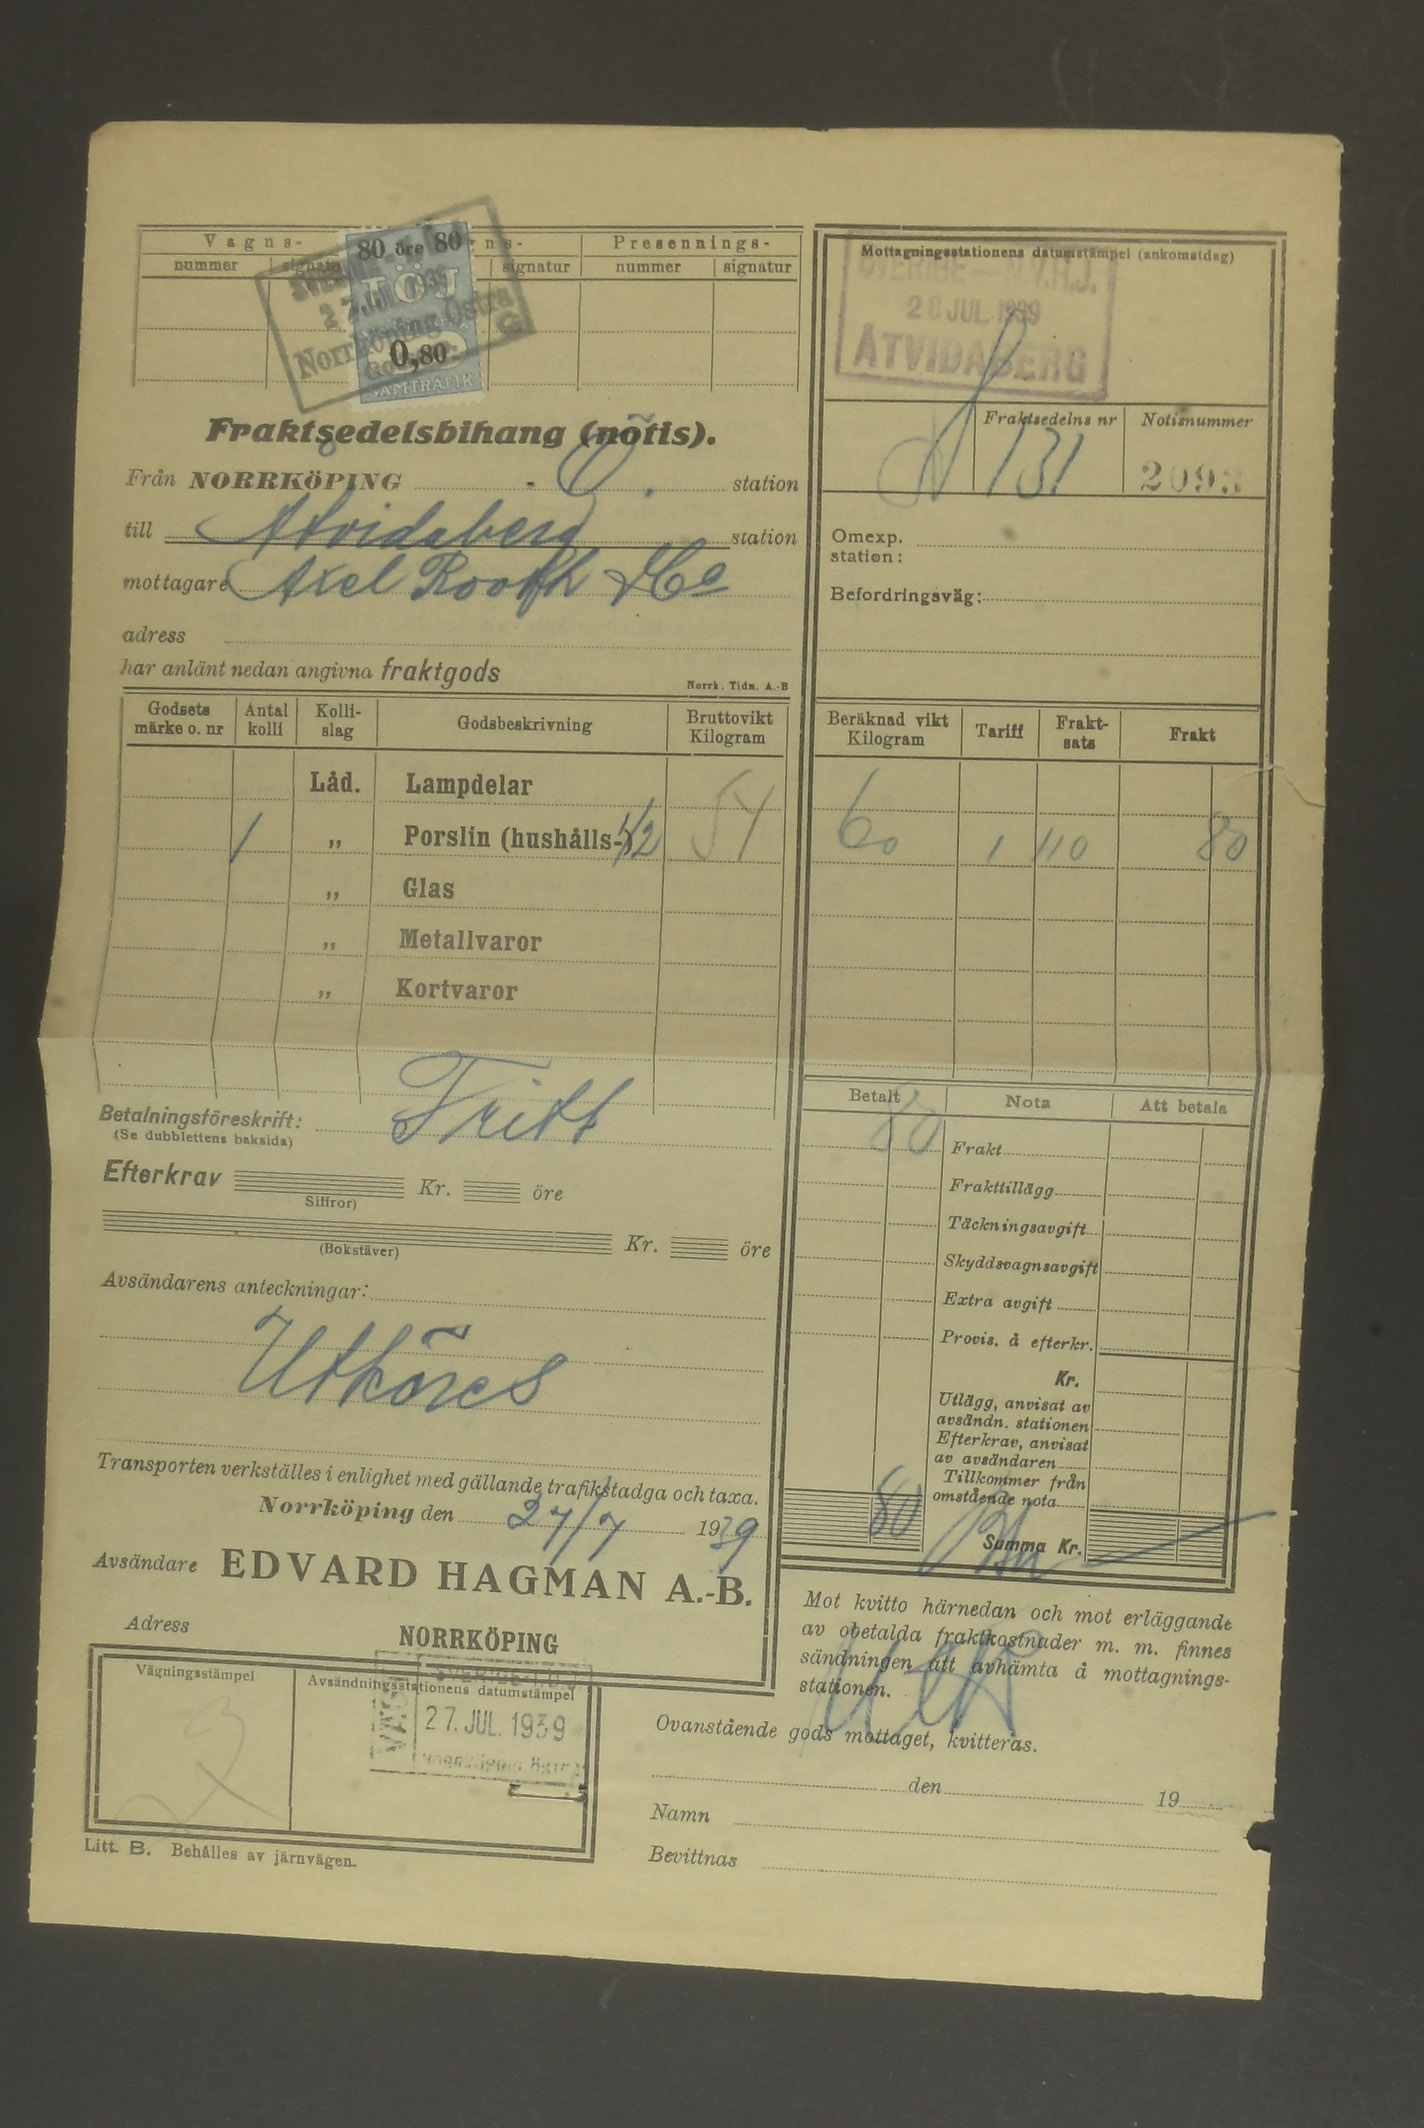 Vagns-
nummer
signatur
Presennings-
nummer
signatur
80 öre 80
TÖJ
0,80
SAMTRAFIK
Norrköping Östra
Mottagningsstationens datumstämpel (ankomstdag)
SVERIGE N.V.H.J.
28 JUL. 1939
ÅTVIDABERG
Fraktsedelns nr
Notisnummer
131
Fraktsedelsbihang (notis).
Från NORRKÖPING Ö. station
till Åtvidaberg station
mottagare Axel Rooth & Co
adress
har anlänt nedan angivna fraktgods
Norrk. Tidn. A.-B
Omexp.
station:
Befordringsväg:
Godsets märke o. nr
Antal kolli
Kolli-slag
Godsbeskrivning
Bruttovikt Kilogram
Beräknad vikt Kilogram
Tariff
Frakt-sats
Frakt
Låd. Lampdelar
1 „ Porslin (hushålls-) 1/2 54 60 1 110 80
„ Glas
„ Metallvaror
„ Kortvaror
Betalningsföreskrift: Fritt
(Se dubblettens baksida)
Efterkrav Kr. öre
Siffror)
Kr. öre
(Bokstäver)
Avsändarens anteckningar:
Utköres
Transporten verkställes i enlighet med gällande trafikstadga och taxa.
Norrköping den 27/7 1939
Avsändare EDVARD HAGMAN A.-B.
Adress NORRKÖPING
Betalt
Nota
Att betala
80 Frakt
Frakttillägg
Täckningsavgift
Skyddsvagnsavgift
Extra avgift
Provis. å efterkr.
Kr.
Utlägg, anvisat av
avsändn. stationen
Efterkrav, anvisat
av avsändaren
Tillkommer från
omstående nota
80 Summa Kr.
Mot kvitto härnedan och mot erläggande
av obetalda fraktkostnader m. m. finnes
sändningen att avhämta å mottagnings-
stationen.
Vägningsstämpel
Avsändningsstationens datumstämpel
27. JUL. 1939
Ovanstående gods mottaget, kvitteras.
den 19
Namn
Bevittnas
Litt. B. Behålles av järnvägen.